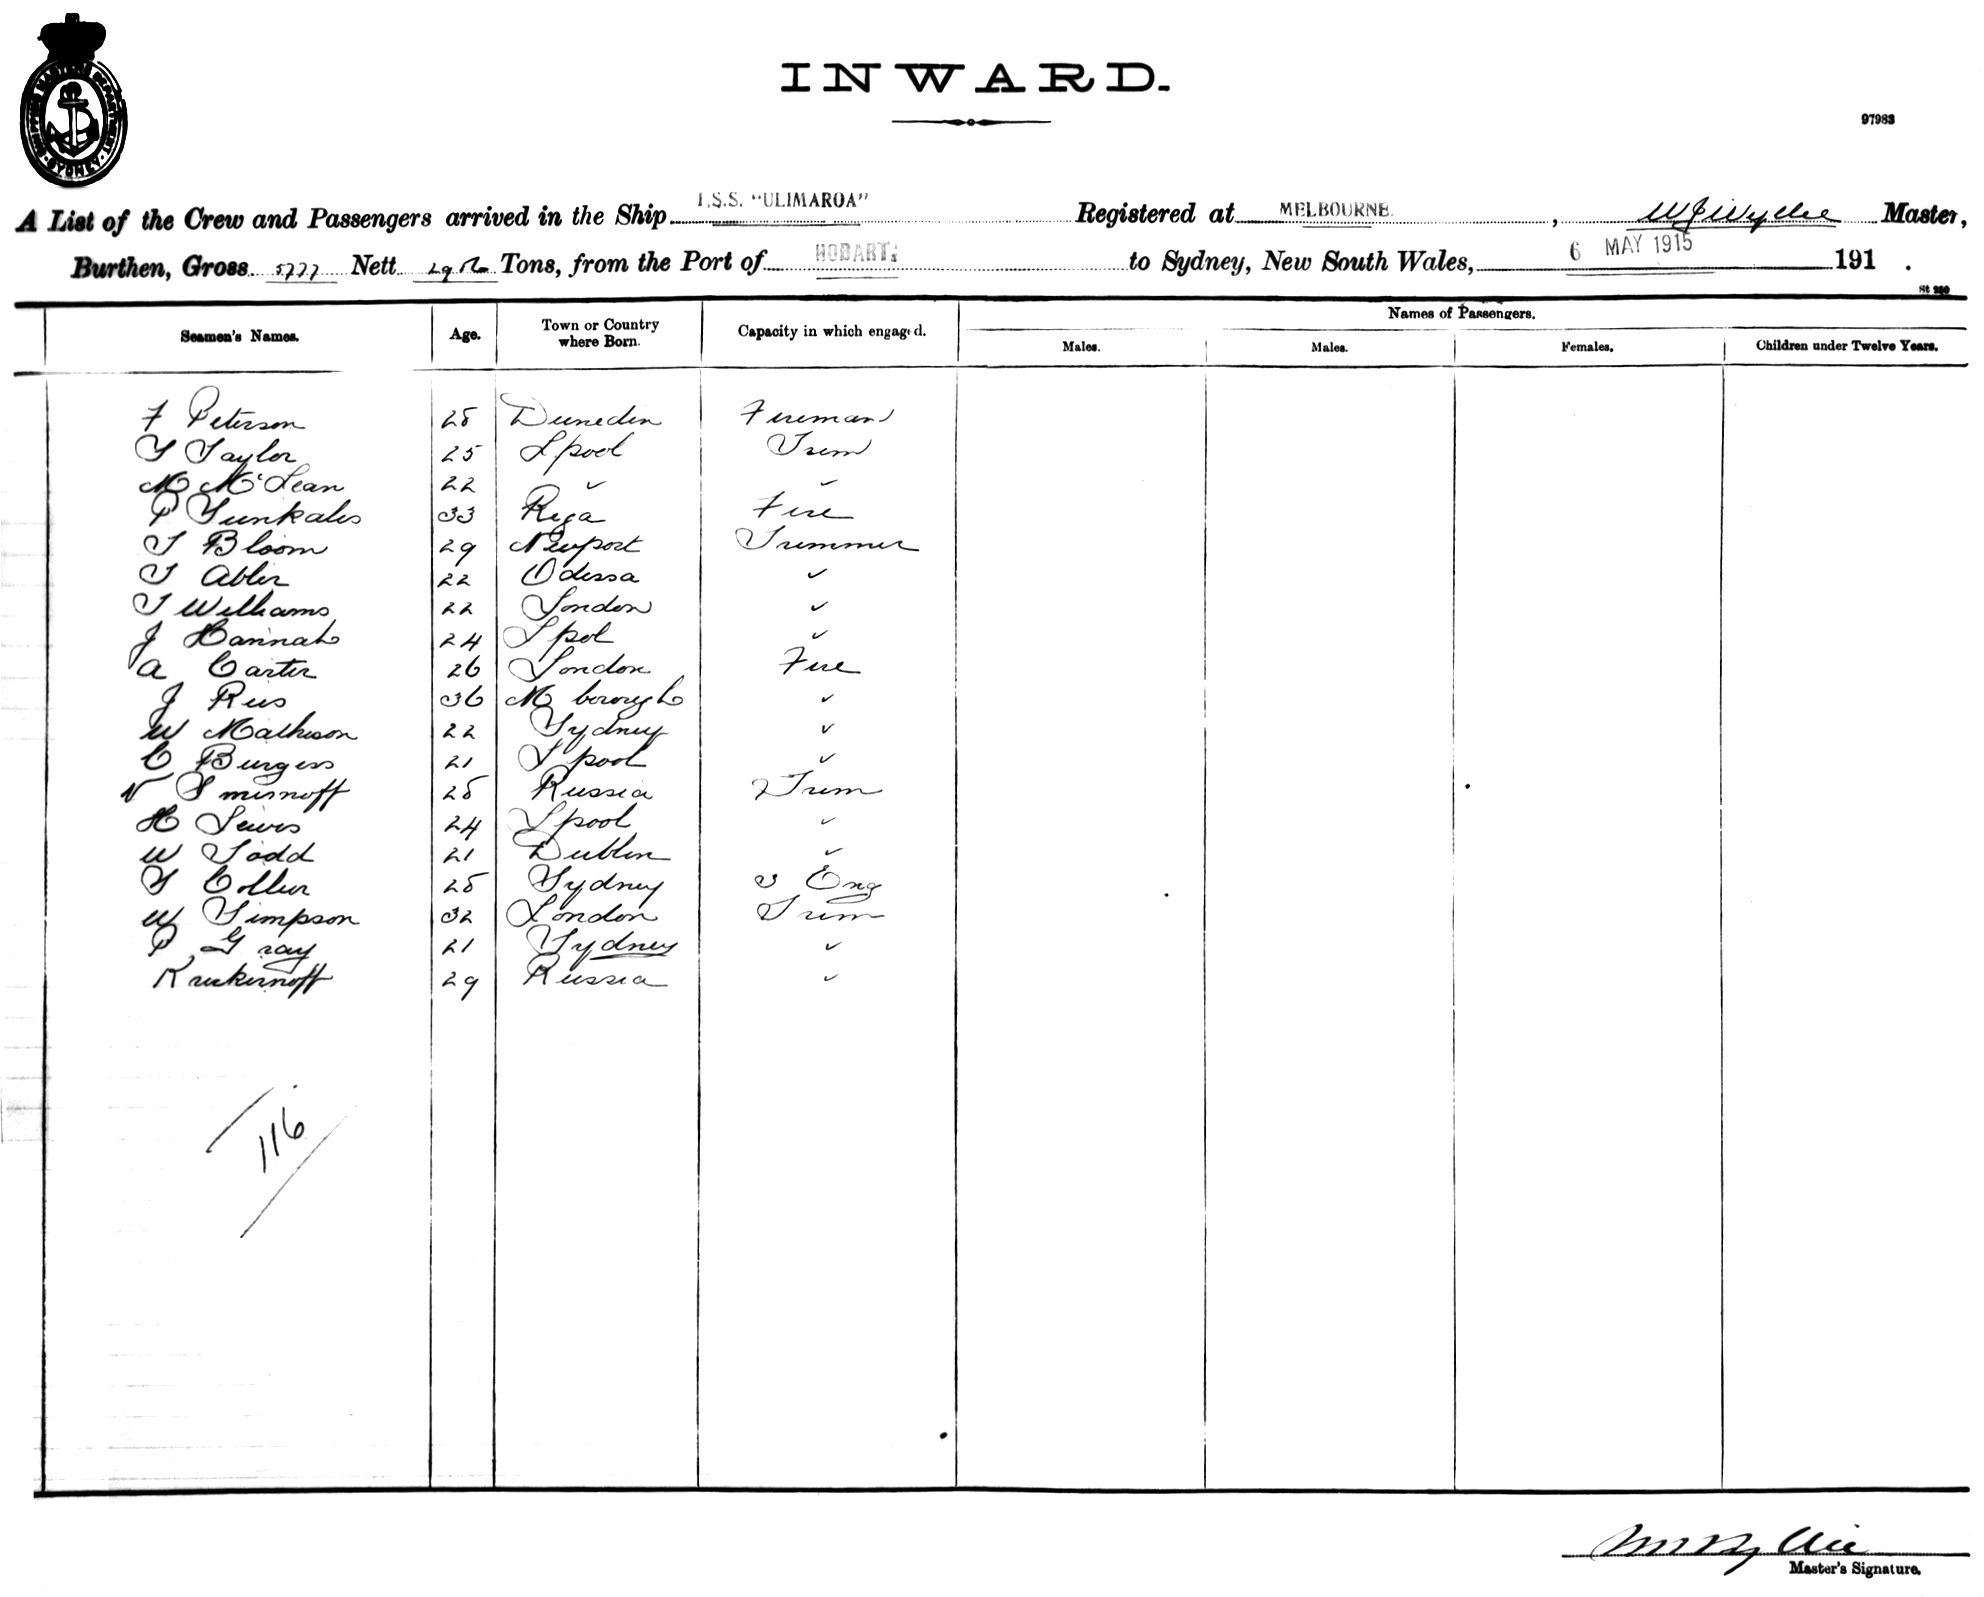 SHIPPING MASTERS DEPARTMENT SYDNEY
INWARD.
97983
A List of the Crew and Passengers arrived in the Ship T.S.S. "ULIMAROA" Registered at MELBOURNE, W J Wyllie Master,
Burthen, Gross 5777 Nett Tons, from the Port of HOBART. to Sydney, New South Wales, 6 MAY 1915 191 .
St 250
Seamen's Names. Age. Town or Country where Born. Capacity in which engaged. Names of Passengers.
Males. Males. Females. Children under Twelve Years.
F Peterson 28 Dunedin Fireman
T Taylor 25 Lpool Trim
M McLean 22 ✓ ✓
P 33 Riga Fire
T Bloom 29 Newport Trimmer
T Abler 22 Odessa ✓
T Williams 22 London ✓
J Hannah 24 Lpol ✓
A Carter 26 London Fire
J Rus 36 M borough ✓
W Mathison 22 Sydney ✓
C Burgess 21 Lpool ✓
N Smirnoff 28 Russia Trim
H Lewis 24 Lpool ✓
W Todd 21 Dublin ✓
T Collier 28 Sydney Eng
W Simpson 32 London Trim
P Gray 21 Sydney ✓
29 Russia ✓
116
Master's Signature.